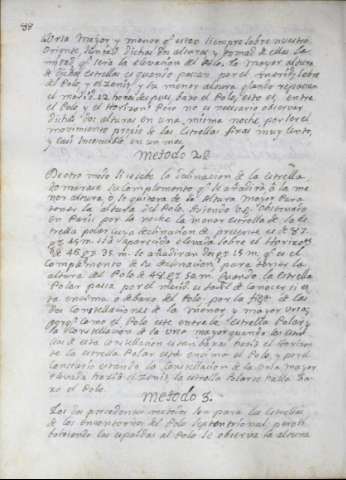 88
altura major y menor q.e esten siempre sobre nuestro
Orizonte, sumad dichas dos alturas y tomad de ellas la
mitad q.e sera la elevacion del Polo. La mayor altura
de dichas estrellas es quando pasan por el sobre
el Polo, y el zenit, y la menor altura quando
al 12 horas despues, baxo el Polo, esto es, entre
el Polo y el Horizonte. Pero no es necesario observar
dichas dos alturas en una misma noche, por ser el
movimiento propio de las estrellas fixas muy lento,
y casi insensible en un mes.
Metodo 2.º
De otro modo si se sabe la declinacion de la estrella
tomarase su complemento q.e se añadirá á la me
nor altura, o se quitara de la altura mayor para
tener la altura del Polo. Asiendo v.g. observado
en París por la noche la menor altura de la es
trella polar cuya declinacion de presente es de 87.
sobre el Horizonte
de 46. 35. m. se añadiran 15 m. q.e es el
complemento de su declinacion, para obtener la
altura del Polo de 48. 50 m. Quando la estrella
Polar pasa por el conocer si es
ta encima o debaxo del Polo, por la de las
dos constelaciones de la menor, y mayor ursa;
porq.e como el Polo esta entre la estrella Polar y
la constelacion de la ursa mayor quando las
de esta constelacion acia el Horizon
te la estrella Polar está encima el Polo, y por el
contrario estando la constelacion de la Osa mayor
elevada acia el Zenit, la estrella Polar se halla ba
xo el Polo.
Metodo 3.
Los dos precedentes metodos son para las estrellas
de los del Polo septentrional, pero
bolviendo las espaldas al Polo se observa la altura